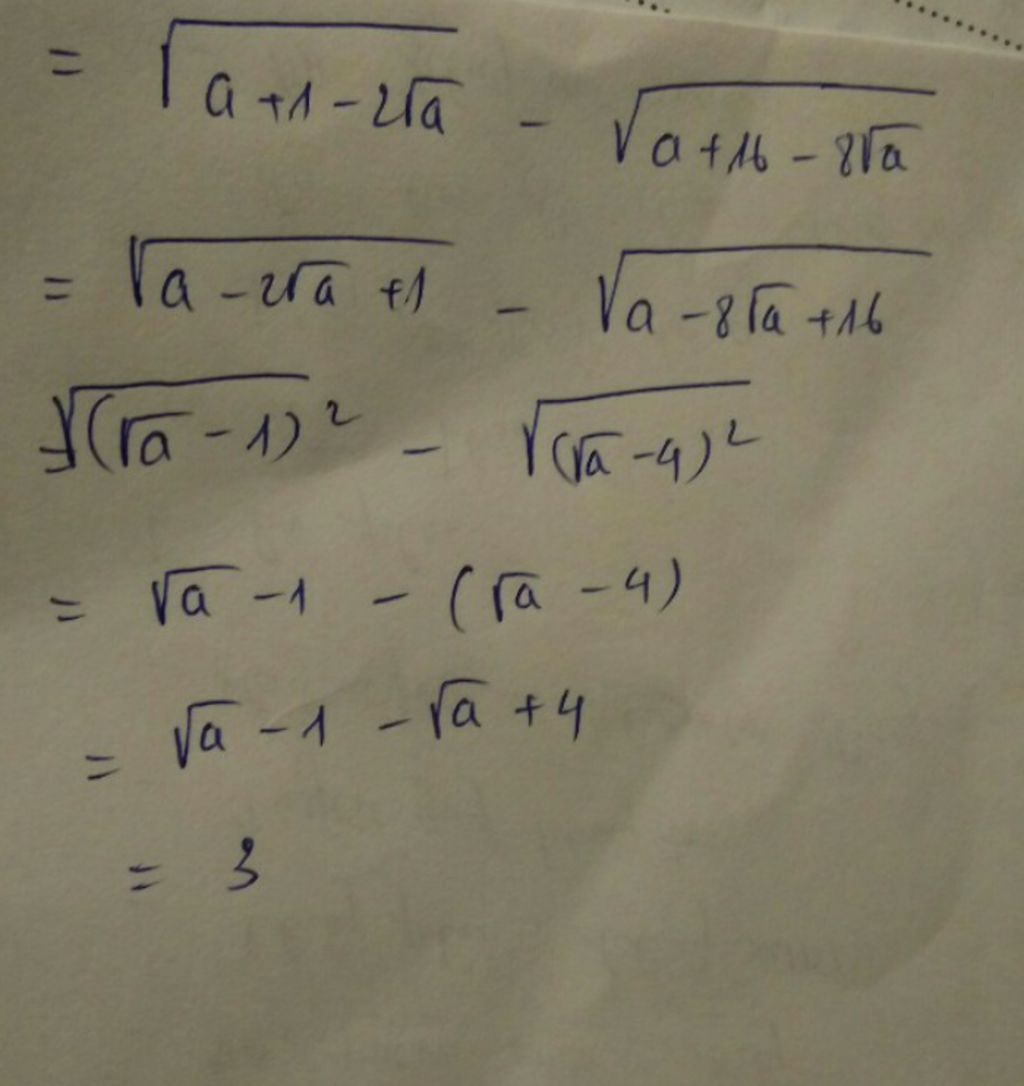 = √(a+1-2√a) - √(a+16-8√a)
= √(a-2√a+1) - √(a-8√a+16)
= √((√a-1)²) - √((√a-4)²)
= √a -1 - (√a -4)
= √a -1 -√a +4
= 3